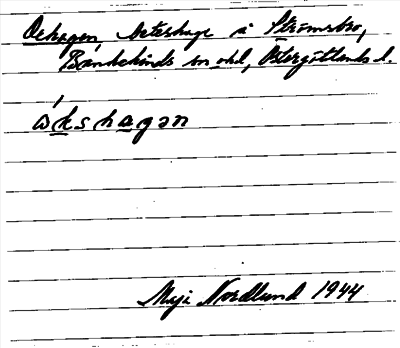 Oxhagen, beteshage i Strömsbro,
Bankekinds sn o hd, Östergötlands l.
ẁkshagən
Maji Nordlund 1944